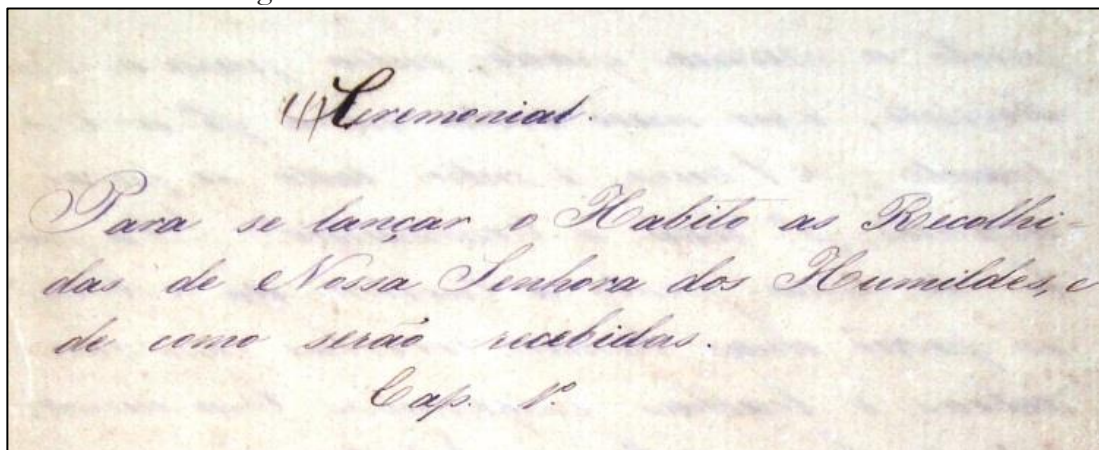 (1) Ceremonial.
Para se lançar o Habito as Recolhi-
das de Nossa Senhora dos Humildes, e
de como serão recebidas.
Cap. 1º